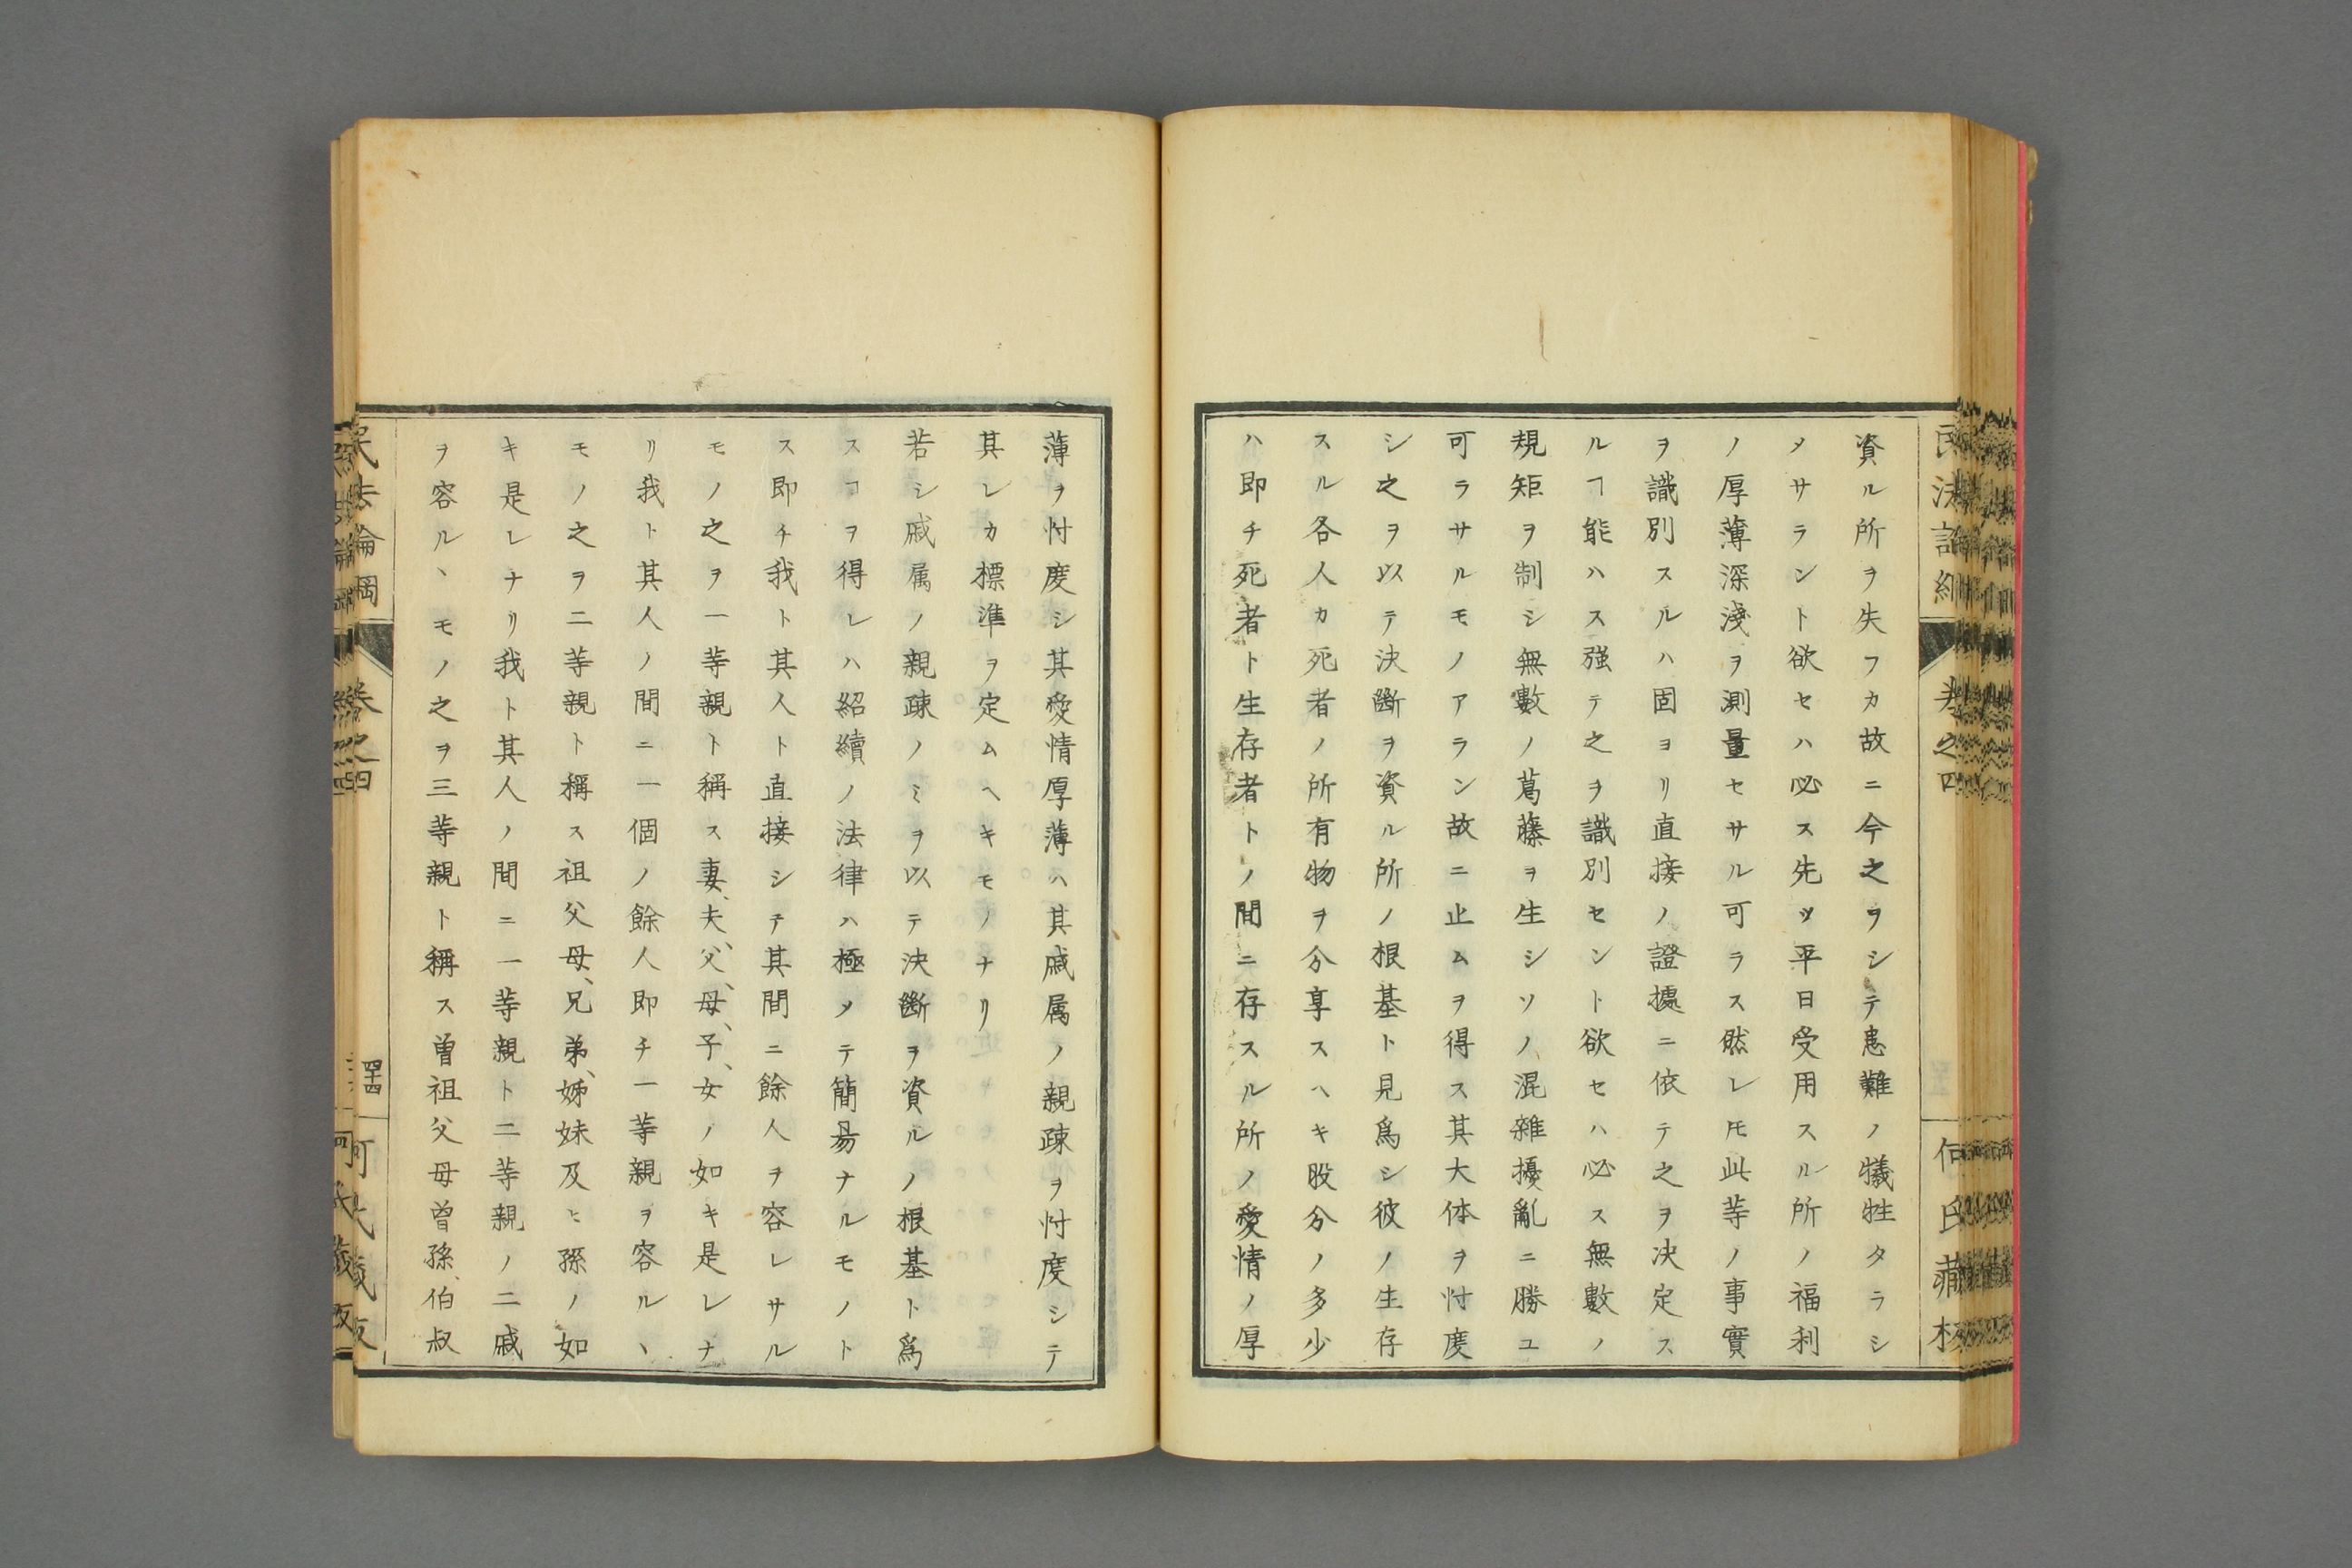 資ル所ヲ失フカ故ニ今之ヲシテ患難ノ犠牲タラシ
メサラント欲セハ必ス先ツ平日受用スル所ノ福利
ノ厚薄深淺ヲ測量セサル可ラス然レ𪜈此等ノ事實
ヲ識別スルハ固ヨリ直接ノ證據ニ依テ之ヲ决定ス
ルヿ能ハス強テ之ヲ識別セント欲セハ必ス無數ノ
規矩ヲ制シ無數ノ葛藤ヲ生シソノ混雜擾亂ニ勝ユ
可ラサルモノアラン故ニ止ムヲ得ス其大体ヲ忖度
シ之ヲ以テ決斷ヲ資ル所ノ根基ト見爲シ彼ノ生存
スル各人カ死者ノ所有物ヲ分享スヘキ股分ノ多少
ハ即チ死者ト生存者トノ間ニ存スル所ノ愛情ノ厚
薄ヲ忖度シ其愛情厚薄ハ其戚属ノ親疎ヲ忖度シテ
其レカ標準ヲ定ムヘキモノナリ
若シ戚属ノ親疎ノミヲ以テ決斷ヲ資ルノ根基ト爲
スヿヲ得レハ紹續ノ法律ハ極メテ簡昜ナルモノト
ス即チ我ト其人ト直接シテ其間ニ餘人ヲ容レサル
モノ之ヲ一等親ト稱ス妻、夫、父、母、子、女ノ如キ是レナ
リ我ト其人ノ間ニ一個ノ餘人即チ一等親ヲ容ルヽ
モノ之ヲ二等親ト稱ス祖父母、兄弟、姊妹及ヒ孫ノ如
キ是レナリ我ト其人ノ間ニ一等親ト二等親ノ二戚
ヲ容ルヽモノ之ヲ三等親ト稱ス曽祖父母曽孫、伯叔
民法論綱
卷之四
四十四
何氏藏板